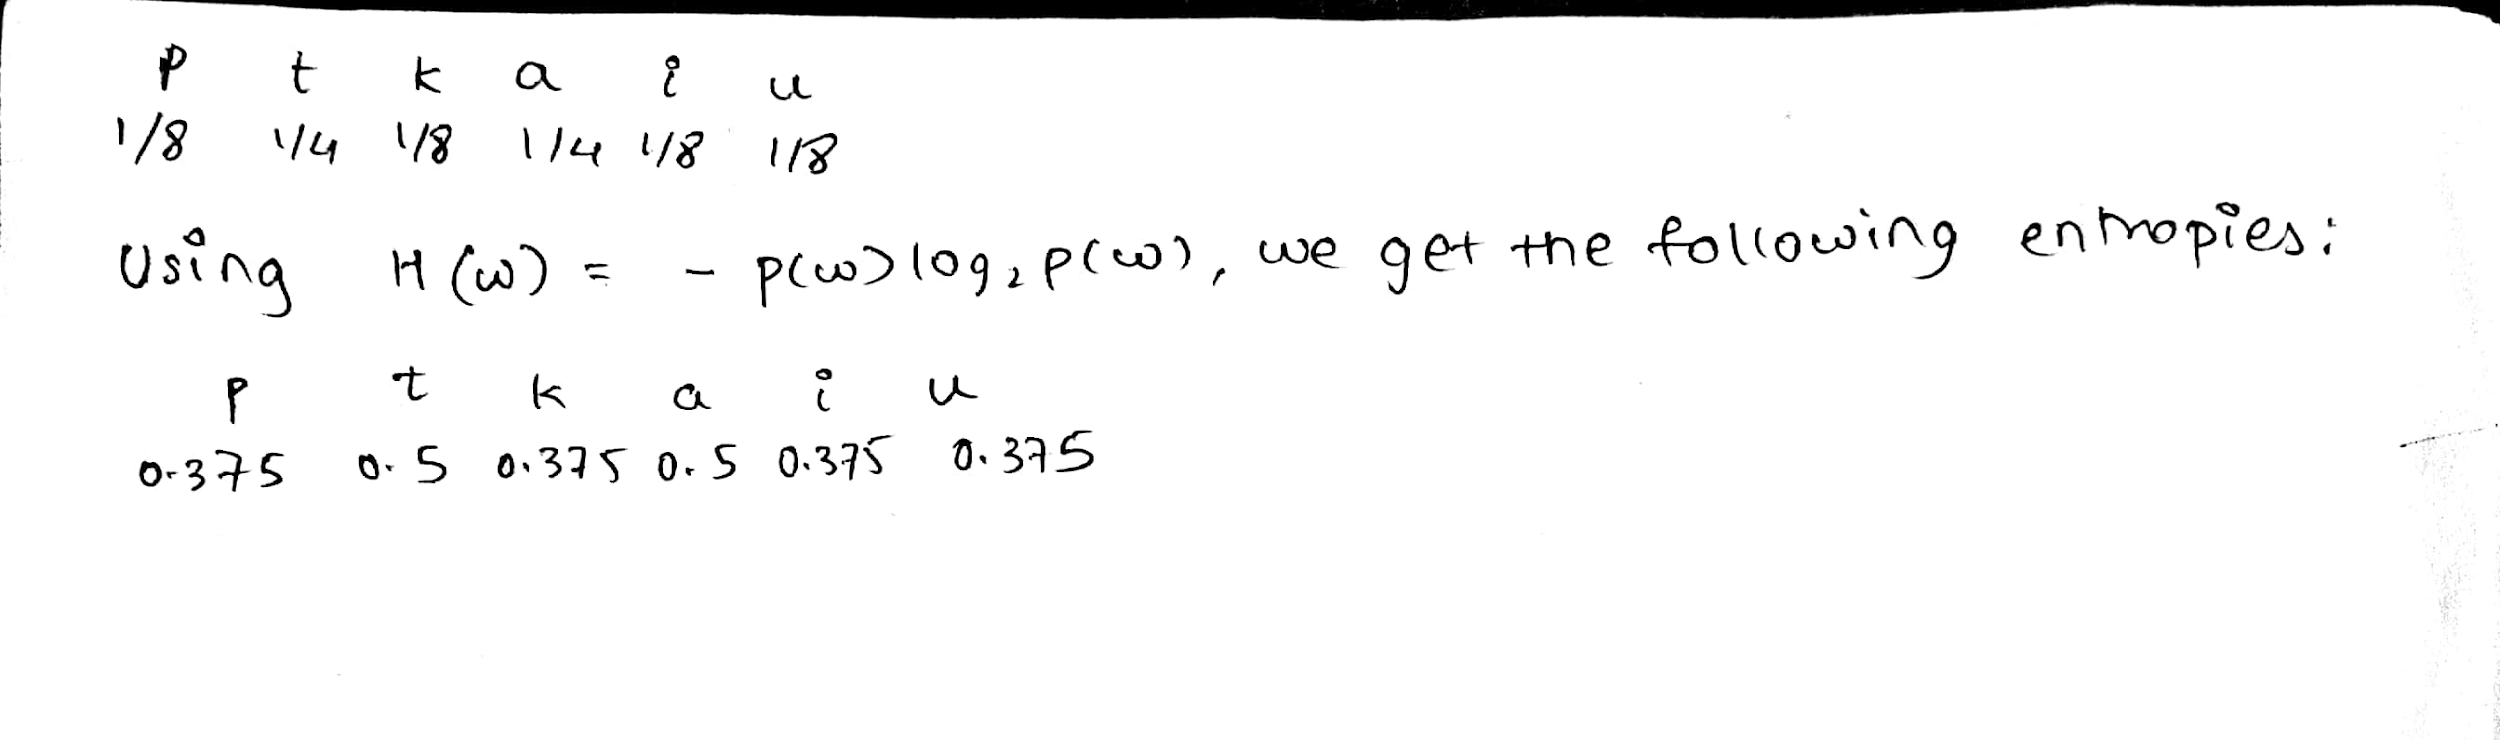 p t k a i u
1/8 1/4 1/8 1/4 1/8 1/8
Using H(w) = - p(w) log₂ p(w), we get the following entropies:
p t k a i u
0.375 0.5 0.375 0.5 0.375 0.375